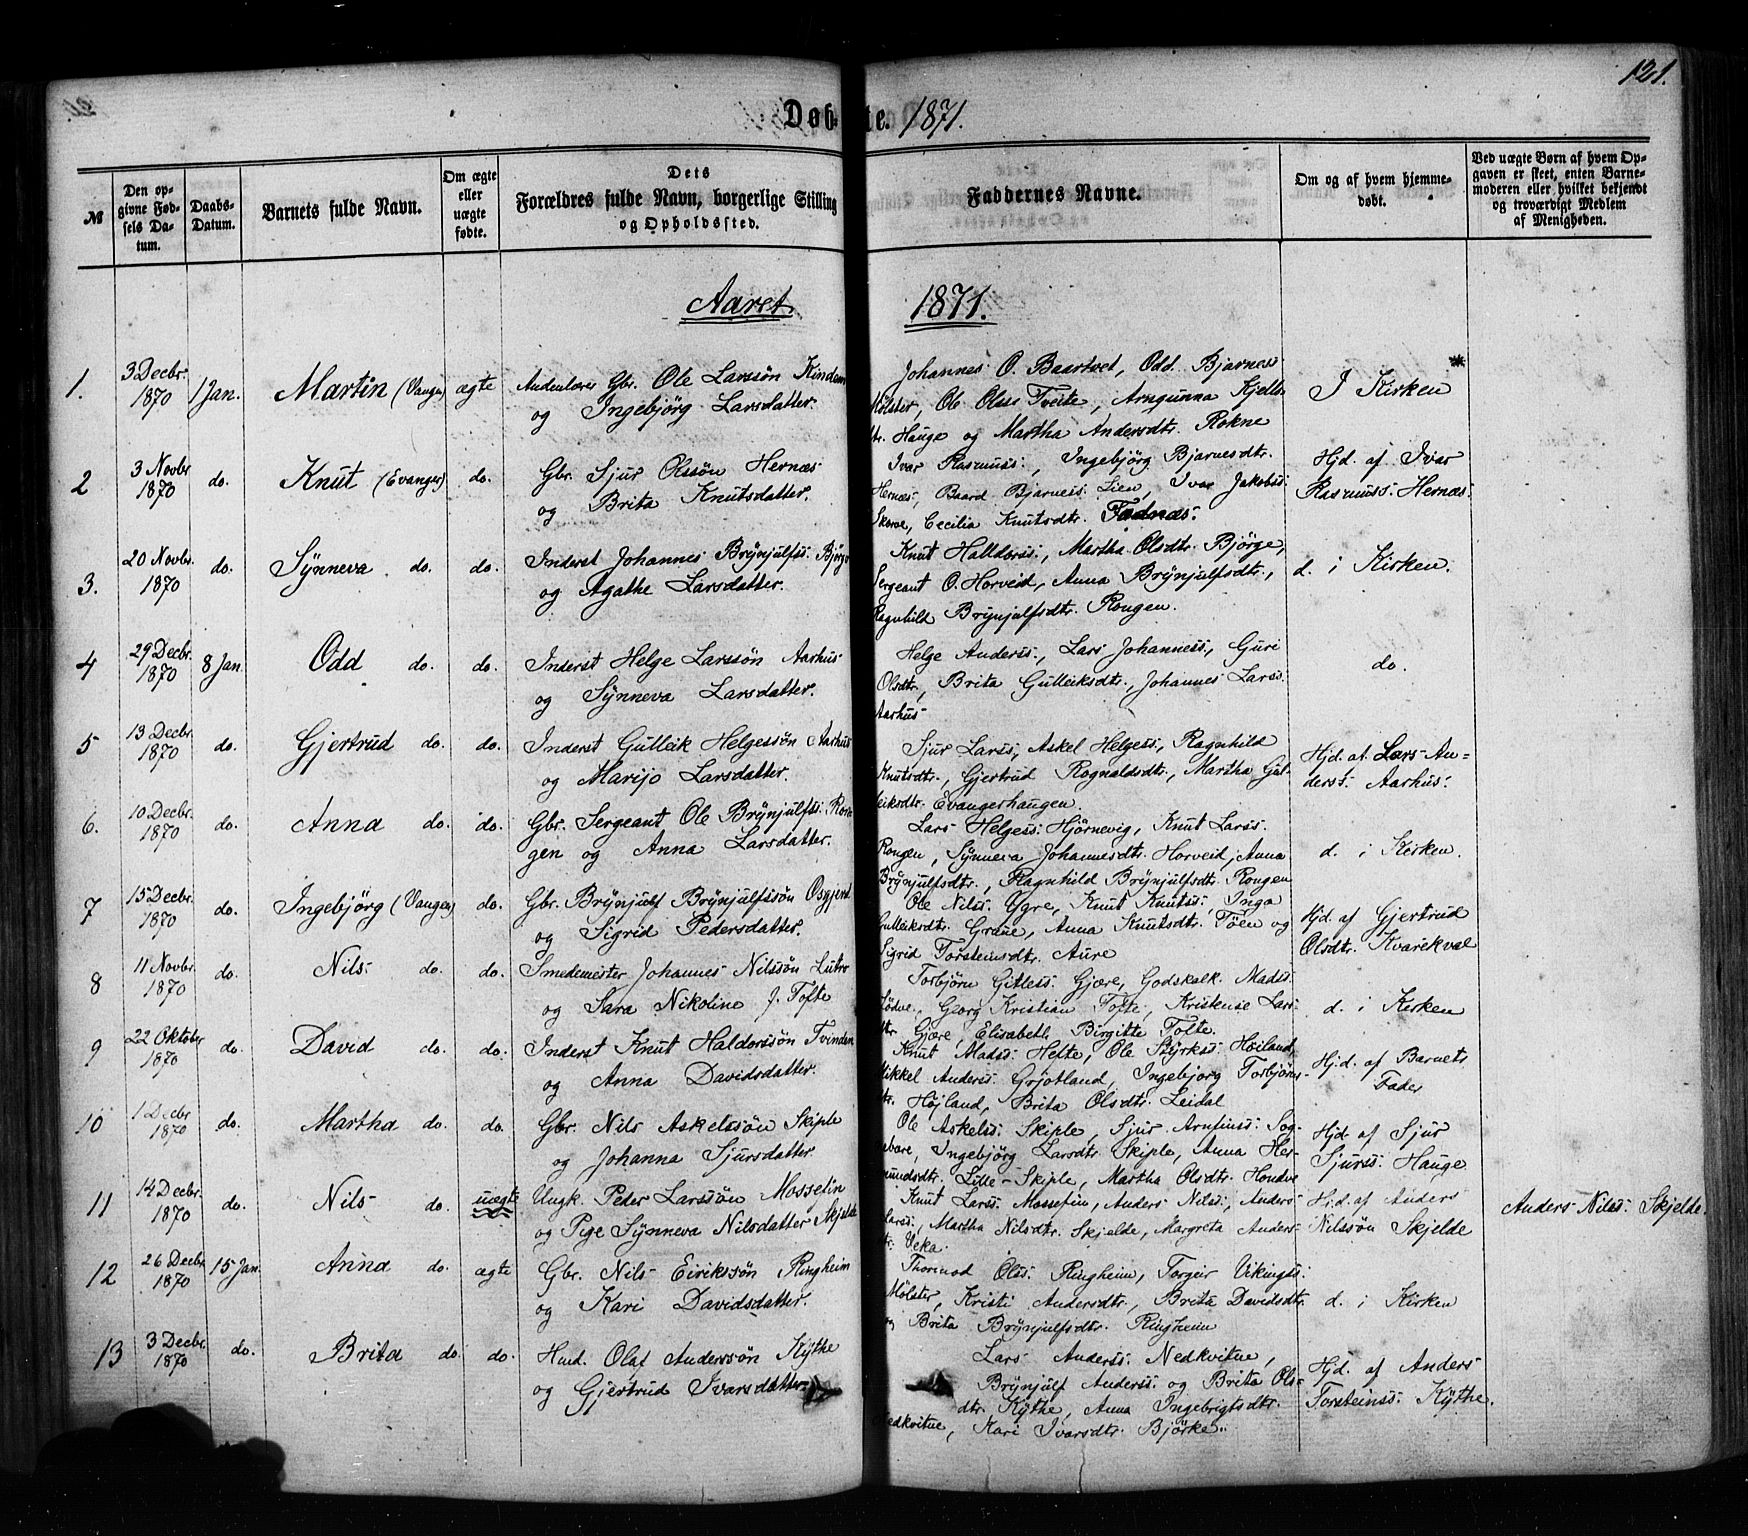 121.
Døbte. 1871.
№
Den opgivne Fødsels Datum.
Daabs-Datum.
Barnets fulde Navn.
Om ægte eller uægte fødte.
Dets Forældres fulde Navn, borgerlige Stilling og Opholdssted.
Faddernes Navne.
Om og af hvem hjemmedøbt.
Ved uægte Børn af hvem Opgaven er skeet, enten Barnemoderen eller hvilket bekjendt og troværdigt Medlem af Menigheden.
Aaret 1871.
1. 3 Decbr. 1870 1 Jan. Martin (Vanger) ægte
Gbr. Ole Larssøn Kindem
og Ingebjørg Larsdatter.
Johannes O. Baartvet, Odd Bjarness
Mølster, Ole Olss Tveite, Arngunna Kjells-
tr. Hauge og Martha Andersdtr. Rokne
I Kirken
2 3 Novbr 1870 do. Knut (Evanger) do.
Gbr. Sjur Olssøn Hernæs
og Brita Knutsdatter.
Ivar Rasmuss:, Ingebjørg Bjarnesdtr.
Hernæs, Baard Bjarness: Lien, Ivar Jakobss:
Skorve, Cecilia Knutsdtr. Fadnæs:
Hjd. af Ivar
Rasmuss: Hernæs:
3. 20 Novbr. 1870 do. Synneva do. do.
Inderst Johannes Brynjulfss: Bjørge
og Agathe Larsdatter.
Knut Halldorss:, Martha Olsdtr. Bjørge,
Sergeant O. Horveid, Anna Brynjulfsdtr.,
Ragnhild Brynjulfsdtr. Rongen.
d. i Kirken.
4 29 Decbr. 1870 8 Jan. Odd do. do.
Inderst Helge Larssøn Aarhus
og Synneva Larsdatter.
Helge Anderss:, Lars Johanness:, Guri
Olsdtr., Brita Gulleiksdtr., Johannes Larss:
Aarhus
do.
5 13 Decbr. 1870 do. Gjertrud do. do.
Inderst Gulleik Helgessøn Aarhus
og Marijo Larsdatter.
Sjur Larss:, Askel Helgess:, Ragnhild
Knutsdtr., Gjertrud Rognaldsdtr., Martha Gul-
leiksdtr. Evangerhaugen.
Hjd. af. Lars An-
derss: Aarhus:
6. 10 Decbr. 1870 do. Anna do. do.
Gbr. Sergeant Ole Brynjulfss: Ron-
gen og Anna Larsdatter.
Lars Helgess: Hjørnevig, Knut Larss.
Rongen, Synneva Johannesdtr. Horveid, Anna
Brynjulfsdtr., Ragnhild Brynjulfsdtr. Rongen
d. i Kirken.
7 15 Decbr. 1870 do. Ingebjørg (Vanger) do.
Gbr. Brynjulf Brynjulfssøn Osgjerd
og Sigrid Pedersdatter.
Ole Nilss: Ygre, Knut Knutss:, Inga
Gulleiksdtr. Graue, Anna Knutsdtr. Tøen og
Sigrid Torsteinsdtr. Aure
Hjd. af Gjertrud
Olsdtr. Kvarekval
8 11 Novbr. 1870 do. Nils do. do.
Smedemester Johannes Nilssøn Lutro
og Sara Nikoline J. Tofte
Torbjørn Gitless: Gjære, Godskalk Madss
Georg Kristian Tofte, Kristense Lars-
dtr Gjære, Elisabeth Birgitte Tofte.
d. i Kirken
9 22 Oktober 1870 do. David do. do.
Inderst Knut Haldorssøn Tvinden
og Anna Davidsdatter.
Knut Madss: Helte, Ole Styrkss: Høiland,
Mikkel Anderss: Grjotland, Ingebjørg Torbjørns-
dtr. Højland, Brita Olsdtr. Leidal
Hjd. af Barnets
Fader
10 1 Decbr 1870 do. Martha do. do.
Gbr. Nils Askelssøn Skiple
og Johanna Sjursdatter
Ole Askelss: Skiple, Sjur Arnfinss: Sog-
Ingebjørg Larsdtr. Skiple, Anna Her-
mundsdtr. Lille-Skiple, Martha Olsdtr. Hondve
Hjd. af Sjur
Sjurss: Hauge
11 14 Decbr. 1870 do. Nils do. uægte
Ungk. Peder Larssøn Mossefin
og Pige Synneva Nilsdatter Skjelde
Knut Larss: Mossefin, Anders Nilss:, Anders
Larss:, Martha Nilsdtr. Skjelde, Margreta Anders-
tr. Veka.
Hjd. af Anders
Nilssøn Skjelde
Anders Nilss: Skjelde.
12 26 Decbr 1870 15 Jan. Anna do. ægte
Gbr. Nils Eirikssøn Ringheim
og Kari Davidsdatter.
Thormod Olss: Ringheim, Torgeir Vikingss:
Mølster, Kristi Andersdtr., Brita Davidsdtr.
og Brita Brynjulfsdtr. Ringheim
d. i Kirken
13 3 Decbr. 1870 do. Brita do. do.
Hmd. Olaf Anderssøn Kythe
og Gjertrud Ivarsdatter
Lars Anderss: Nedkvitne,
Brynjulf Anderss: og Brita Ols-
dtr. Kythe, Anna Ingebrigtsdtr.
Nedkvitne, Kari Ivarsdtr. Bjørke.
Hjd. af Anders
Torsteinss: Kythe.